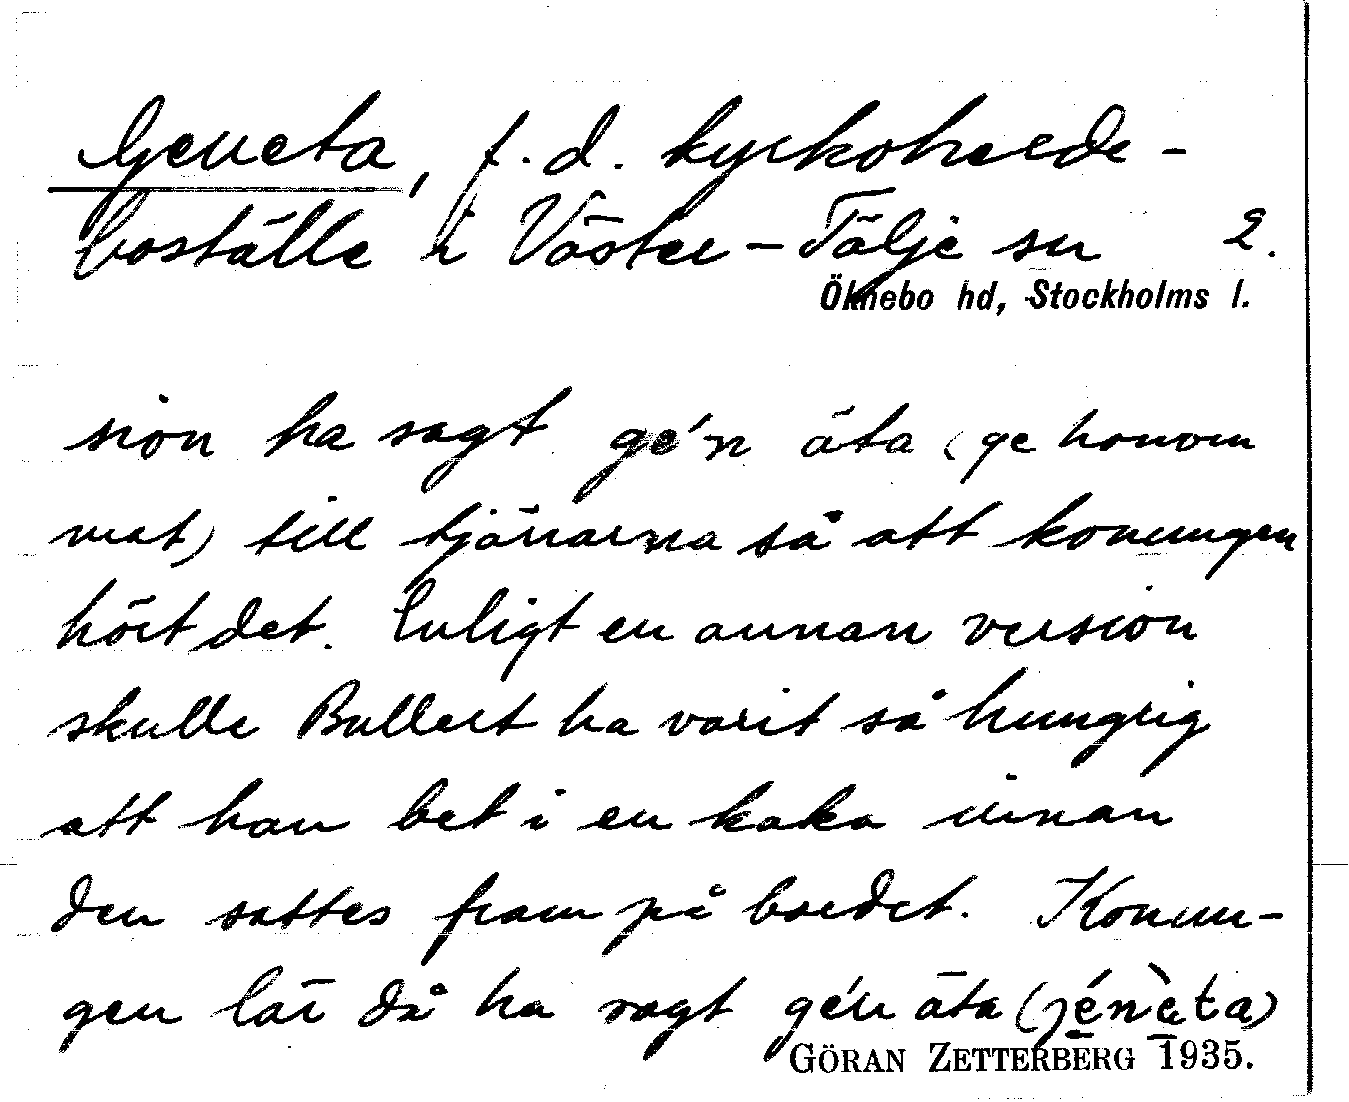 Geneta, f.d. kyrkoherde-
boställe i Väster-Tälje sn 2.
Öknebo hd, Stockholms l.
sion ha sagt ge'n äta (ge honom
mat) till tjänarna så att konungen
hört det. Enligt en annan version
skulle Bullert ha varit så hungrig
att han bet i en kaka innan
den sattes fram på bordet. Konun-
gen lär då ha sagt ge'n äta (jénèta)
GÖRAN ZETTERBERG 1935.